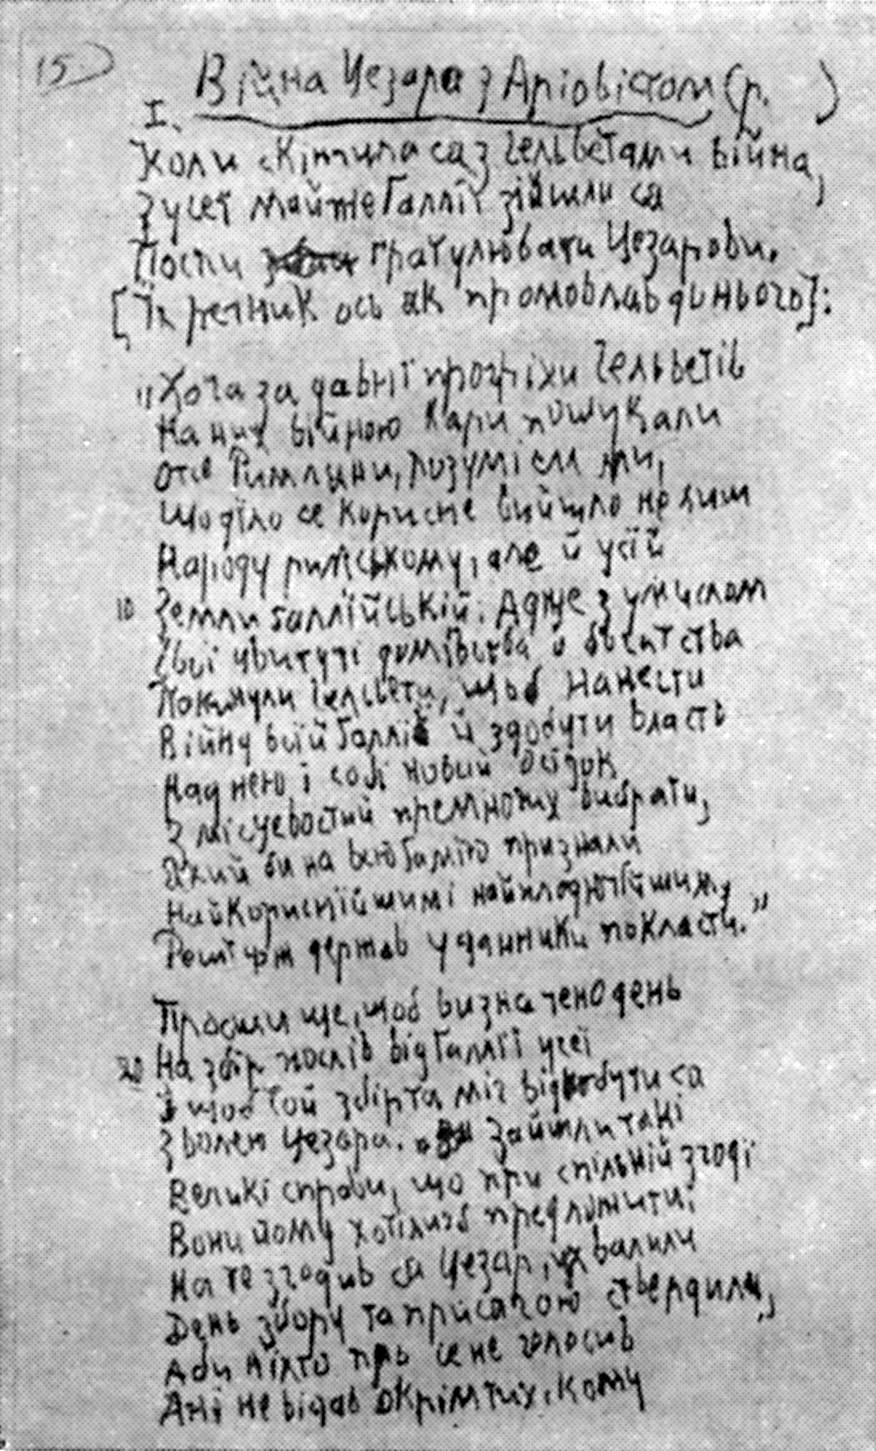 15.
Війна Цезара з Аріовістом (р. )
I.
Коли скінчила ся з Гельветами війна,
З усеї майже Галлії зійшли ся
Посли ґратулювати Цезарови.
[Їх речник ось як промовляв до нього]:
„Хоча за давнії прогріхи Гельветів
На них війною кари пошукали
Отсе Римляни, розумієм ми,
Що діло се корисне вийшло не лиш
Народу римському, але й усій
10 Земли галлійській. Адже з умислом
Свої квитучі домівства й богатства
Покинули Гельвети, щоб нанести
Війну всїй Галлії й здобути власть
Над нею і собі новий осідок
З місцевостий премногих вибрати,
Який би на всю Галлію признали
Найкориснійшим і найплоднійшим,
Решту ж держав у данники покласти.”
Просили ще, щоб визначено день
20 На збір послів від Галлії усеї
І щоб той збір та міг відбути ся
З волею Цезара. Зайшли такі
Великі справи, що при спільній згоді
Вони йому хотіли б предложити.
На те згодив ся Цезар, ухвалили
День збору та присягою ствердили,
Аби ніхто про се не голосив
Ані не відав окрім тих, кому